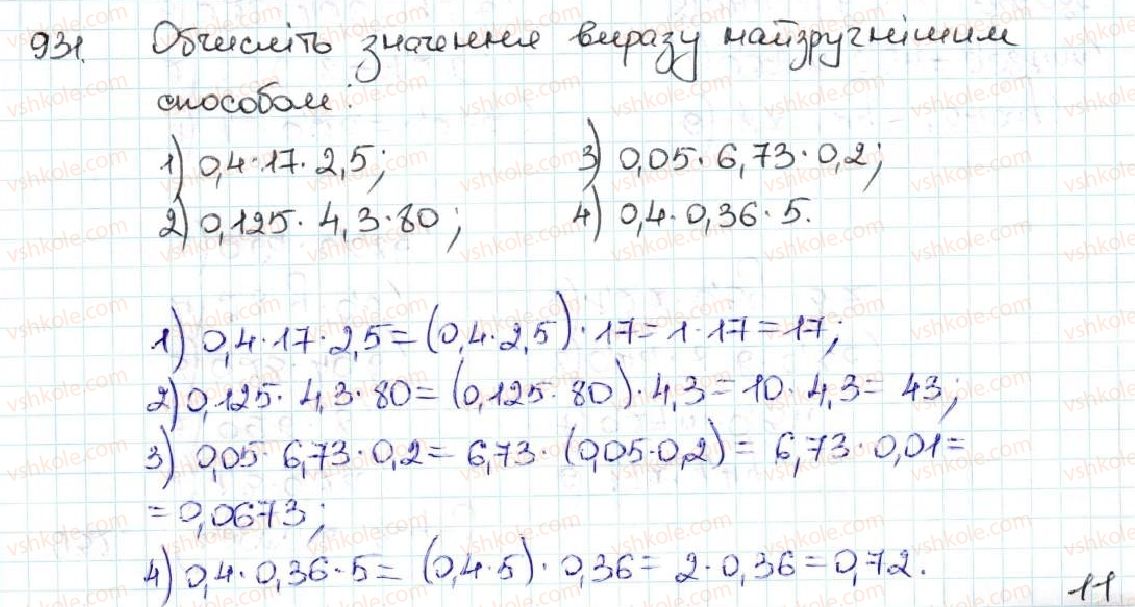 931. Обчисліть значення виразу найзручнішим
способом:
1) 0,4·17·2,5; 3) 0,05·6,73·0,2;
2) 0,125·4,3·80; 4) 0,4·0,36·5.
1) 0,4·17·2,5=(0,4·2,5)·17=1·17=17;
2) 0,125·4,3·80=(0,125·80)·4,3=10·4,3=43;
3) 0,05·6,73·0,2=6,73·(0,05·0,2)=6,73·0,01=
=0,0673;
4) 0,4·0,36·5=(0,4·5)·0,36=2·0,36=0,72.
11